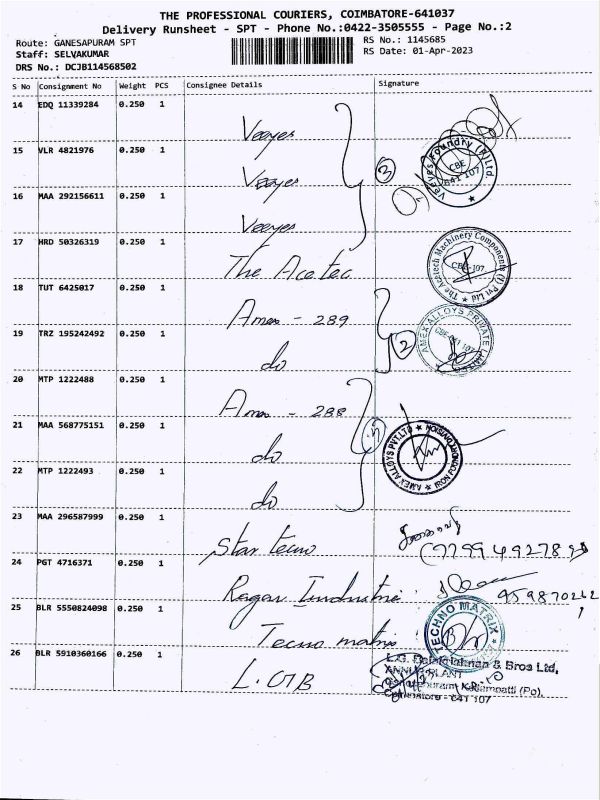 THE PROFESSIONAL COURIERS, COIMBATORE-641037
Delivery Runsheet - SPT - Phone No.:0422-3505555 - Page No.:2
Route: GANESAPURAM SPT
RS No.: 1145685
Staff: SELVAKUMAR
RS Date: 01-Apr-2023
DRS No.: DCJB114568502
S No Consignment No Weight PCS Consignee Details Signature
14 EDQ 11339284 0.250 1 Veeyes
15 VLR 4821976 0.250 1 Veeyes
3
Veeyes Foundry (P) Ltd. CBE 641 107
16 MAA 292156611 0.250 1 Veeyes
17 HRD 50326319 0.250 1 The Acetec
The Acetech Machinery Components (I) Pvt Ltd CBE-107
18 TUT 6425017 0.250 1 Amex - 289
19 TRZ 195242492 0.250 1 do
2
AMEX ALLOYS PRIVATE LIMITED CBE-641 107
20 MTP 1222488 0.250 1 Amex - 288
21 MAA 568775151 0.250 1 do
AMEX ALLOYS PVT.LTD IRON FOUNDRY DIVISION
22 MTP 1222493 0.250 1 do
23 MAA 296587999 0.250 1 Star tecno
24 PGT 4716371 0.250 1 Ragav Industrie
25 BLR 5550824098 0.250 1 Tecno matrix
TECHNO MATRIX
26 BLR 5910360166 0.250 1 L.GB
L.G. Balakrishnan & Bros Ltd,
ANNUR PLANT
Ganesapuram, Kattampatti (Po),
Coimbatore - 641 107